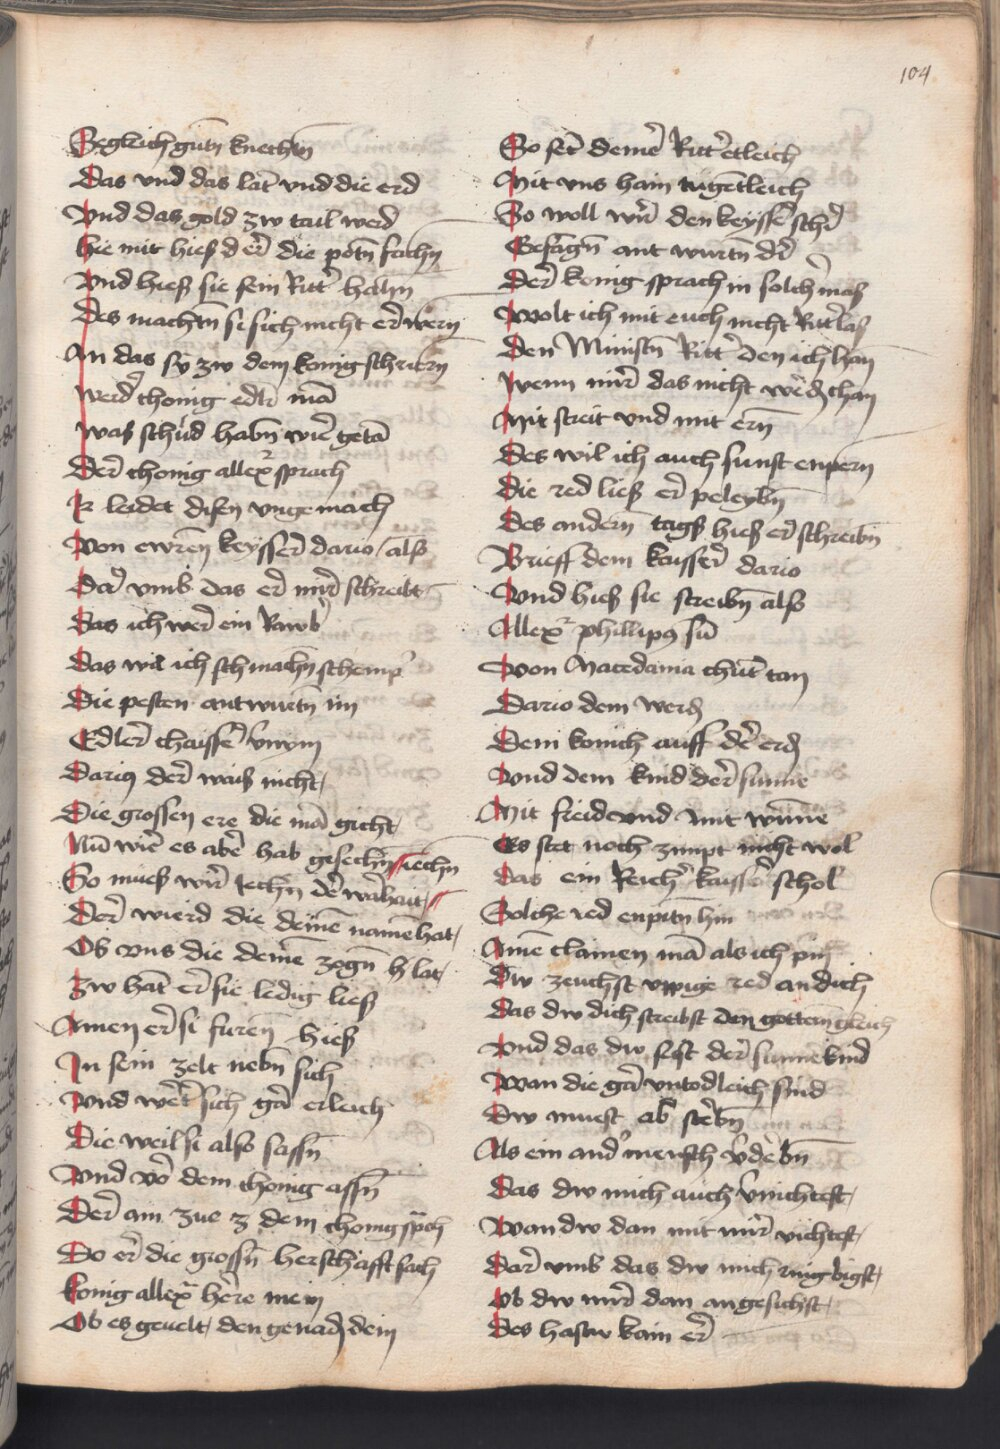 104
Segleich gutn knechtn
Das vnd das lat vnd die erd
Vnd das gold zw tail werd
Hie mit hieß der die potn fachn
Vnd hieß sie sein Ritt hahn
Des machtn si sich nicht erwern
An das sy zw dem konig schrirn
Werd chonig edlr ma
Was schuld habn wir geta
Der chonig allexr sprach
Ir leidet disen vngemach
Von ewren keysser dario / alß
Dar vmb das er mir schreibt
Das ich wer ein Rawbr
Das wil ich sch machn schempr
Die pesten antwurtn im
Edler chaisser vnym
Darig der waiß nicht /
Die grossen ere die ma gicht /
Nu wir es aber hab gesechn iechn
So mueß wir iechn der warhait /
Der wierd die deine name hat /
Ob vns die deine zogn h lat /
Zw hat er sie ledig ließ
Amen er si furen hieß
In sein zelt nebn sich
Vnd wert sich gar erleich
Die weil si also sassn
Vnd vor dem chonig assn
Der am zue z dem chonig sprach
Do er die grossn herschafft sach
konig allexr here mein
Ob es geuelt / den genadn dein
So sec deme Ritt etleich
Mit vns haim tugetleich
So woll wir den keysser schir
Gefagn antwurtn dir
Der konig sprach in solcher maß
Wolt ich mit euch nicht Ritt laß
Den Minstn Ritt den ich han
Wenn mir das nicht werdn chan
Mit streit vnd mit ern
Des wil ich auch sunst enpern
Die red ließ er peleybn
Des andern tags hieß er schreibn
Brieff dem kaysser dario
Vnd hieß sie screibn also
Allexr phillipg su
Von Macedania chut tan
Dario dem werdn
Dem konich auff der erdn
Vnd dem kind der sunne
Mit freid vnd mit wune
Es stet noch zimpt nicht wol
das ein Reichr kaisser schol
Solche red enpitn hin
Ame clainen ma als ich pin
Dw zeuchst vppige red an dich
Das dw dich streibst den gottern gleich
Vnd das dw seist der sunne kind
Wan die gar vntodleich sind
Dw muest ab sterbn
Als ein andr mensch vderbn
Das dw mich auch vnichtest /
Wan dw dan mit mir vichtest /
Dar vmb das dw mich ringbigst /
Ob dw mir dan angesichst /
Des hastw kain er